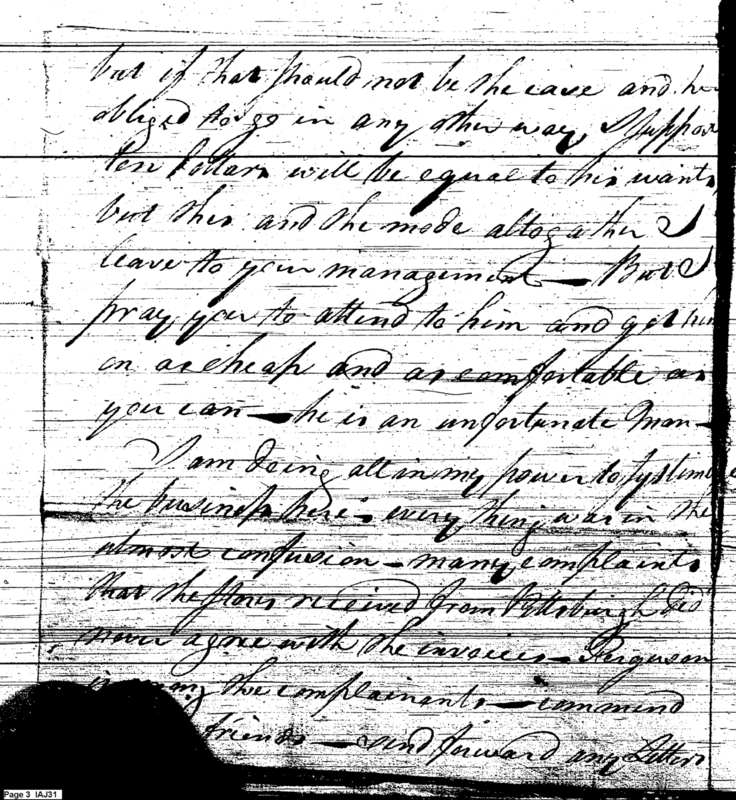 but if that should not be the case and he
obliged to go in any other way, I suppose
ten Dollars will be equal to his wants,
but this and the mode altogather I
leave to your management — But I
pray you to attend to him and get him
on as cheap and as comfortable as
you can — he is an unfortunate Man —
I am doing all in my power to systim
the business here — every thing was in the
utmost confusion — many complaints
that the stores received from Pittsburgh did
never agree with the invoices — Ferguson
among the complainants — commend
friends — and forward any Letters
Page 3 IAJ31